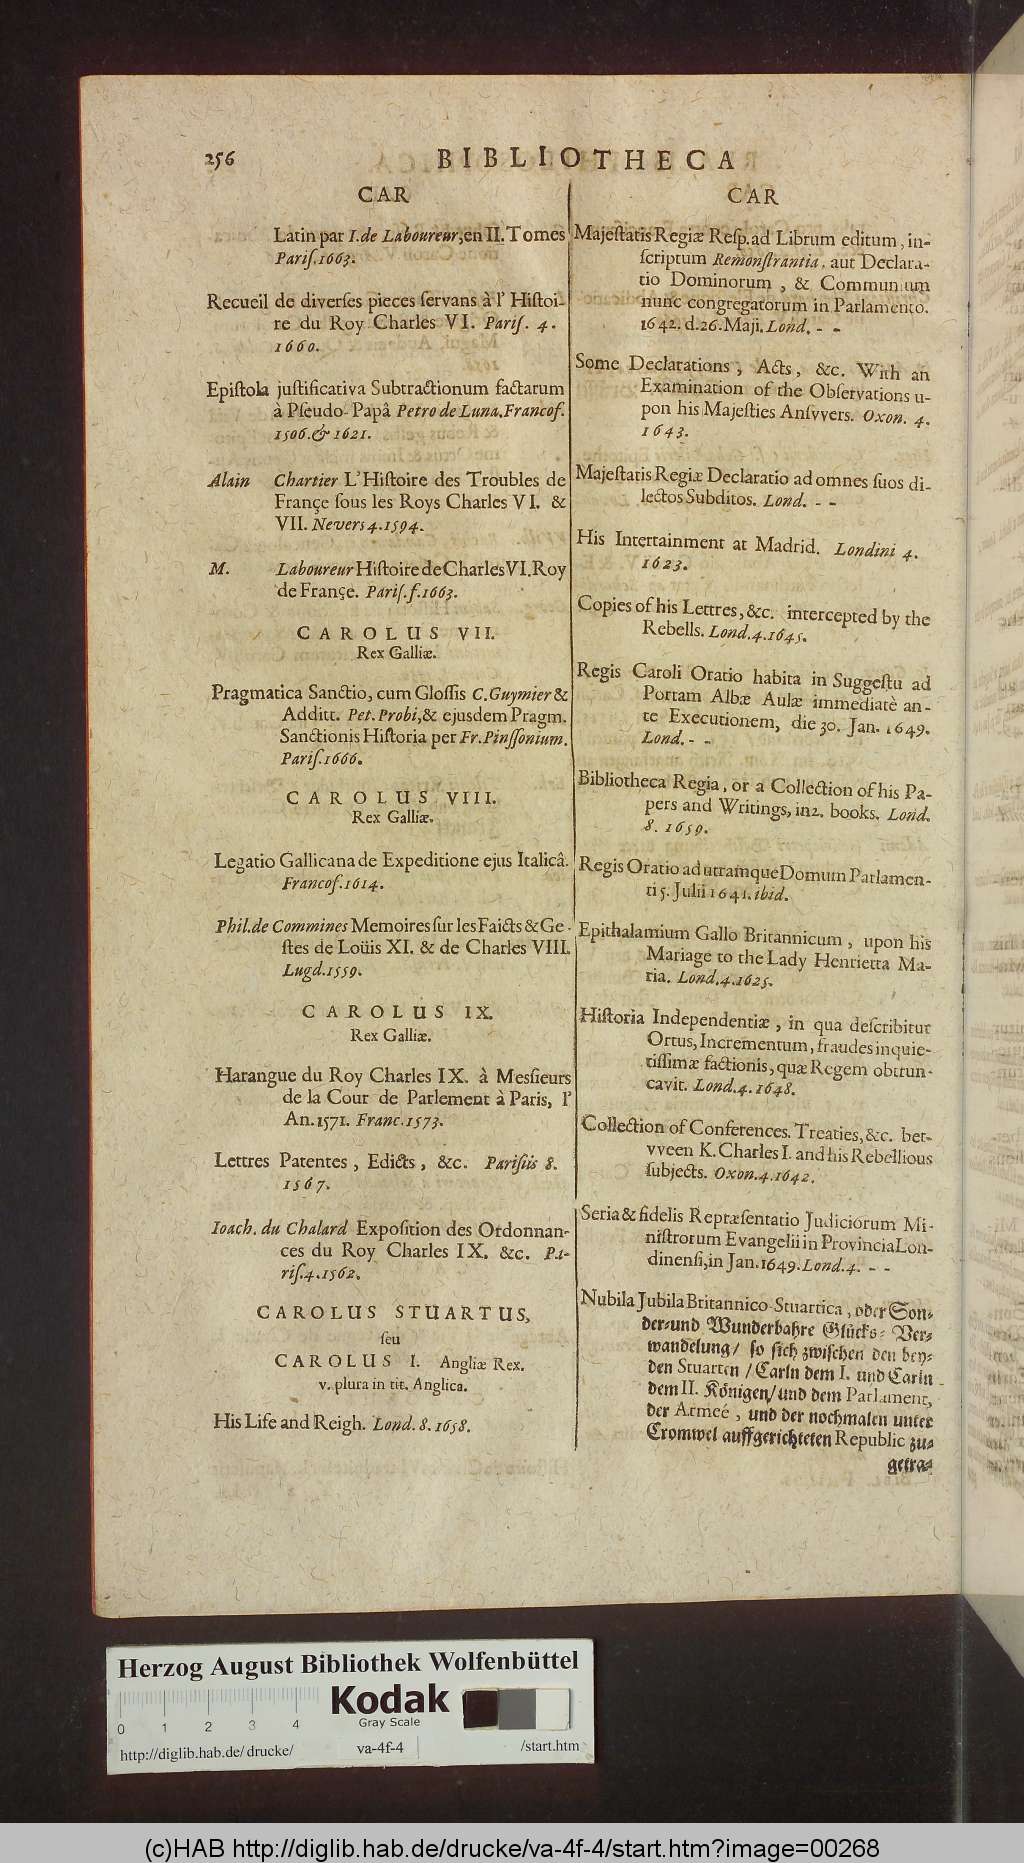 256
BIBLIOTHECA
CAR
Latin par I. de Laboureur, en II. Tomes
Pariſ. 1663.
Recueil de diverſes pieces ſervans à l' Hiſtoi-
re du Roy Charles VI. Pariſ. 4.
1660.
Epiſtola juſtificativa Subtractionum factarum
à Pſeudo-Papâ Petro de Luna. Francof.
1506. & 1621.
Alain Chartier L'Hiſtoire des Troubles de
Françe ſous les Roys Charles VI. &
VII. Nevers 4. 1594.
M. Laboureur Hiſtoire de Charles VI. Roy
de Françe. Pariſ. f. 1663.
CAROLUS VII.
Rex Galliæ.
Pragmatica Sanctio, cum Gloſſis C. Guymier &
Additt. Pet. Probi, & ejusdem Pragm.
Sanctionis Hiſtoria per Fr. Pinſſonium.
Pariſ. 1666.
CAROLUS VIII.
Rex Galliæ.
Legatio Gallicana de Expeditione ejus Italicâ.
Francof. 1614.
Phil. de Commines Memoires ſur les Faicts & Ge-
ſtes de Loüis XI. & de Charles VIII.
Lugd. 1559.
CAROLUS IX.
Rex Galliæ.
Harangue du Roy Charles IX. à Mesſieurs
de la Cour de Parlement à Paris, l'
An. 1571. Franc. 1573.
Lettres Patentes, Edicts, &c. Pariſiis 8.
1567.
Ioach. du Chalard Expoſition des Ordonnan-
ces du Roy Charles IX. &c. Pa-
riſ. 4. 1562.
CAROLUS STUARTUS,
ſeu
CAROLUS I. Angliæ Rex.
v. plura in tit. Anglica.
His Life and Reigh. Lond. 8. 1658.
CAR
Majeſtatis Regiæ Reſp. ad Librum editum, in-
ſcriptum Remonſtrantia, aut Declara-
tio Dominorum, & Communium
nunc congregatorum in Parlamento.
1642. d. 26. Maji. Lond. - -
Some Declarations, Acts, &c. With an
Examination of the Obſervations u-
pon his Majeſties Anſvvers. Oxon. 4.
1643.
Majeſtatis Regiæ Declaratio ad omnes ſuos di-
lectos Subditos. Lond. - -
His Intertainment at Madrid. Londini 4.
1623.
Copies of his Lettres, &c. intercepted by the
Rebells. Lond. 4. 1645.
Regis Caroli Oratio habita in Suggeſtu ad
Portam Albæ Aulæ immediatè an-
te Executionem, die 30. Jan. 1649.
Lond. - -
Bibliotheca Regia, or a Collection of his Pa-
pers and Writings, in 2. books. Lond.
8. 1659.
Regis Oratio ad utramque Domum Parlamen-
ti 5. Julii 1641. ibid.
Epithalamium Gallo Britannicum, upon his
Mariage to the Lady Henrietta Ma-
ria. Lond. 4. 1625.
Hiſtoria Independentiæ, in qua deſcribitur
Ortus, Incrementum, fraudes inquie-
tiſſimæ factionis, quæ Regem obtrun-
cavit. Lond. 4. 1648.
Collection of Conferences. Treaties, &c. bet-
vveen K. Charles I. and his Rebellious
ſubjects. Oxon. 4. 1642.
Seria & fidelis Repræſentatio Judiciorum Mi-
niſtrorum Evangelii in Provincia Lon-
dinenſi, in Jan. 1649. Lond. 4. - -
Nubila Jubila Britannico-Stuartica, oder Son-
der- und Wunderbahre Glücks- Ver-
wandelung/ ſo ſich zwiſchen den bey-
den Stuarten / Carln dem I. und Carln
dem II. Königen/ und dem Parlament,
der Armeé, und der nochmalen unter
Cromwel auffgerichteten Republic zu-
getra-
Herzog August Bibliothek Wolfenbüttel
Kodak
Gray Scale
0 1 2 3 4
http://diglib.hab.de/drucke/ va-4f-4 /start.htm
(c)HAB http://diglib.hab.de/drucke/va-4f-4/start.htm?image=00268